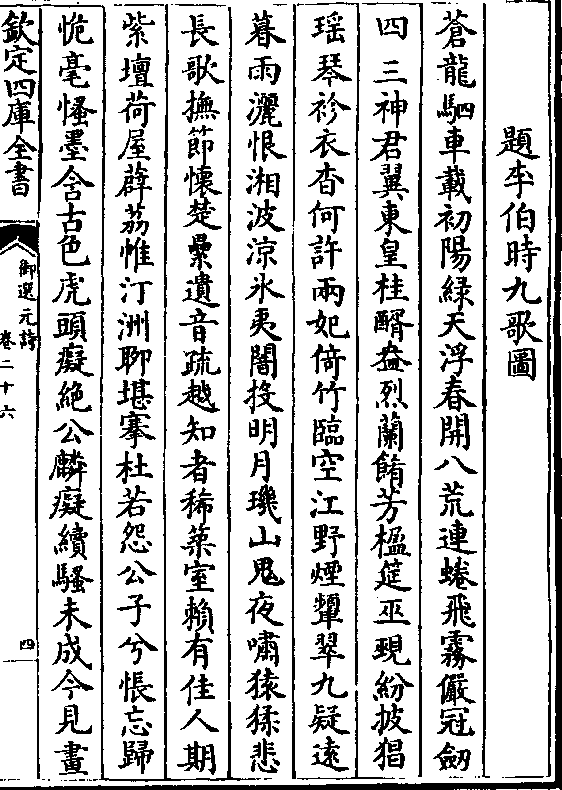 題李伯時九歌圖
蒼龍駟車載初陽綠天浮春開八荒連蜷飛霧儼冠劒
四三神君翼東皇桂醑盎烈蘭餚芳楹筵巫覡紛披猖
瑶琴袗衣杳何許兩妃倚竹臨空江野煙顰翠九疑遠
暮雨灑恨湘波涼氷夷闇投明月璣山鬼夜嘯猿猱悲
長歌撫節懷楚纍遺音疏越知者稀築室賴有佳人期
紫壇荷屋薜荔帷汀洲聊堪搴杜若怨公子兮悵忘歸
恠毫慅墨含古色虎頭癡絶公麟癡續騷未成今見畫
欽定四庫全書
御選元詩
卷二十六
四